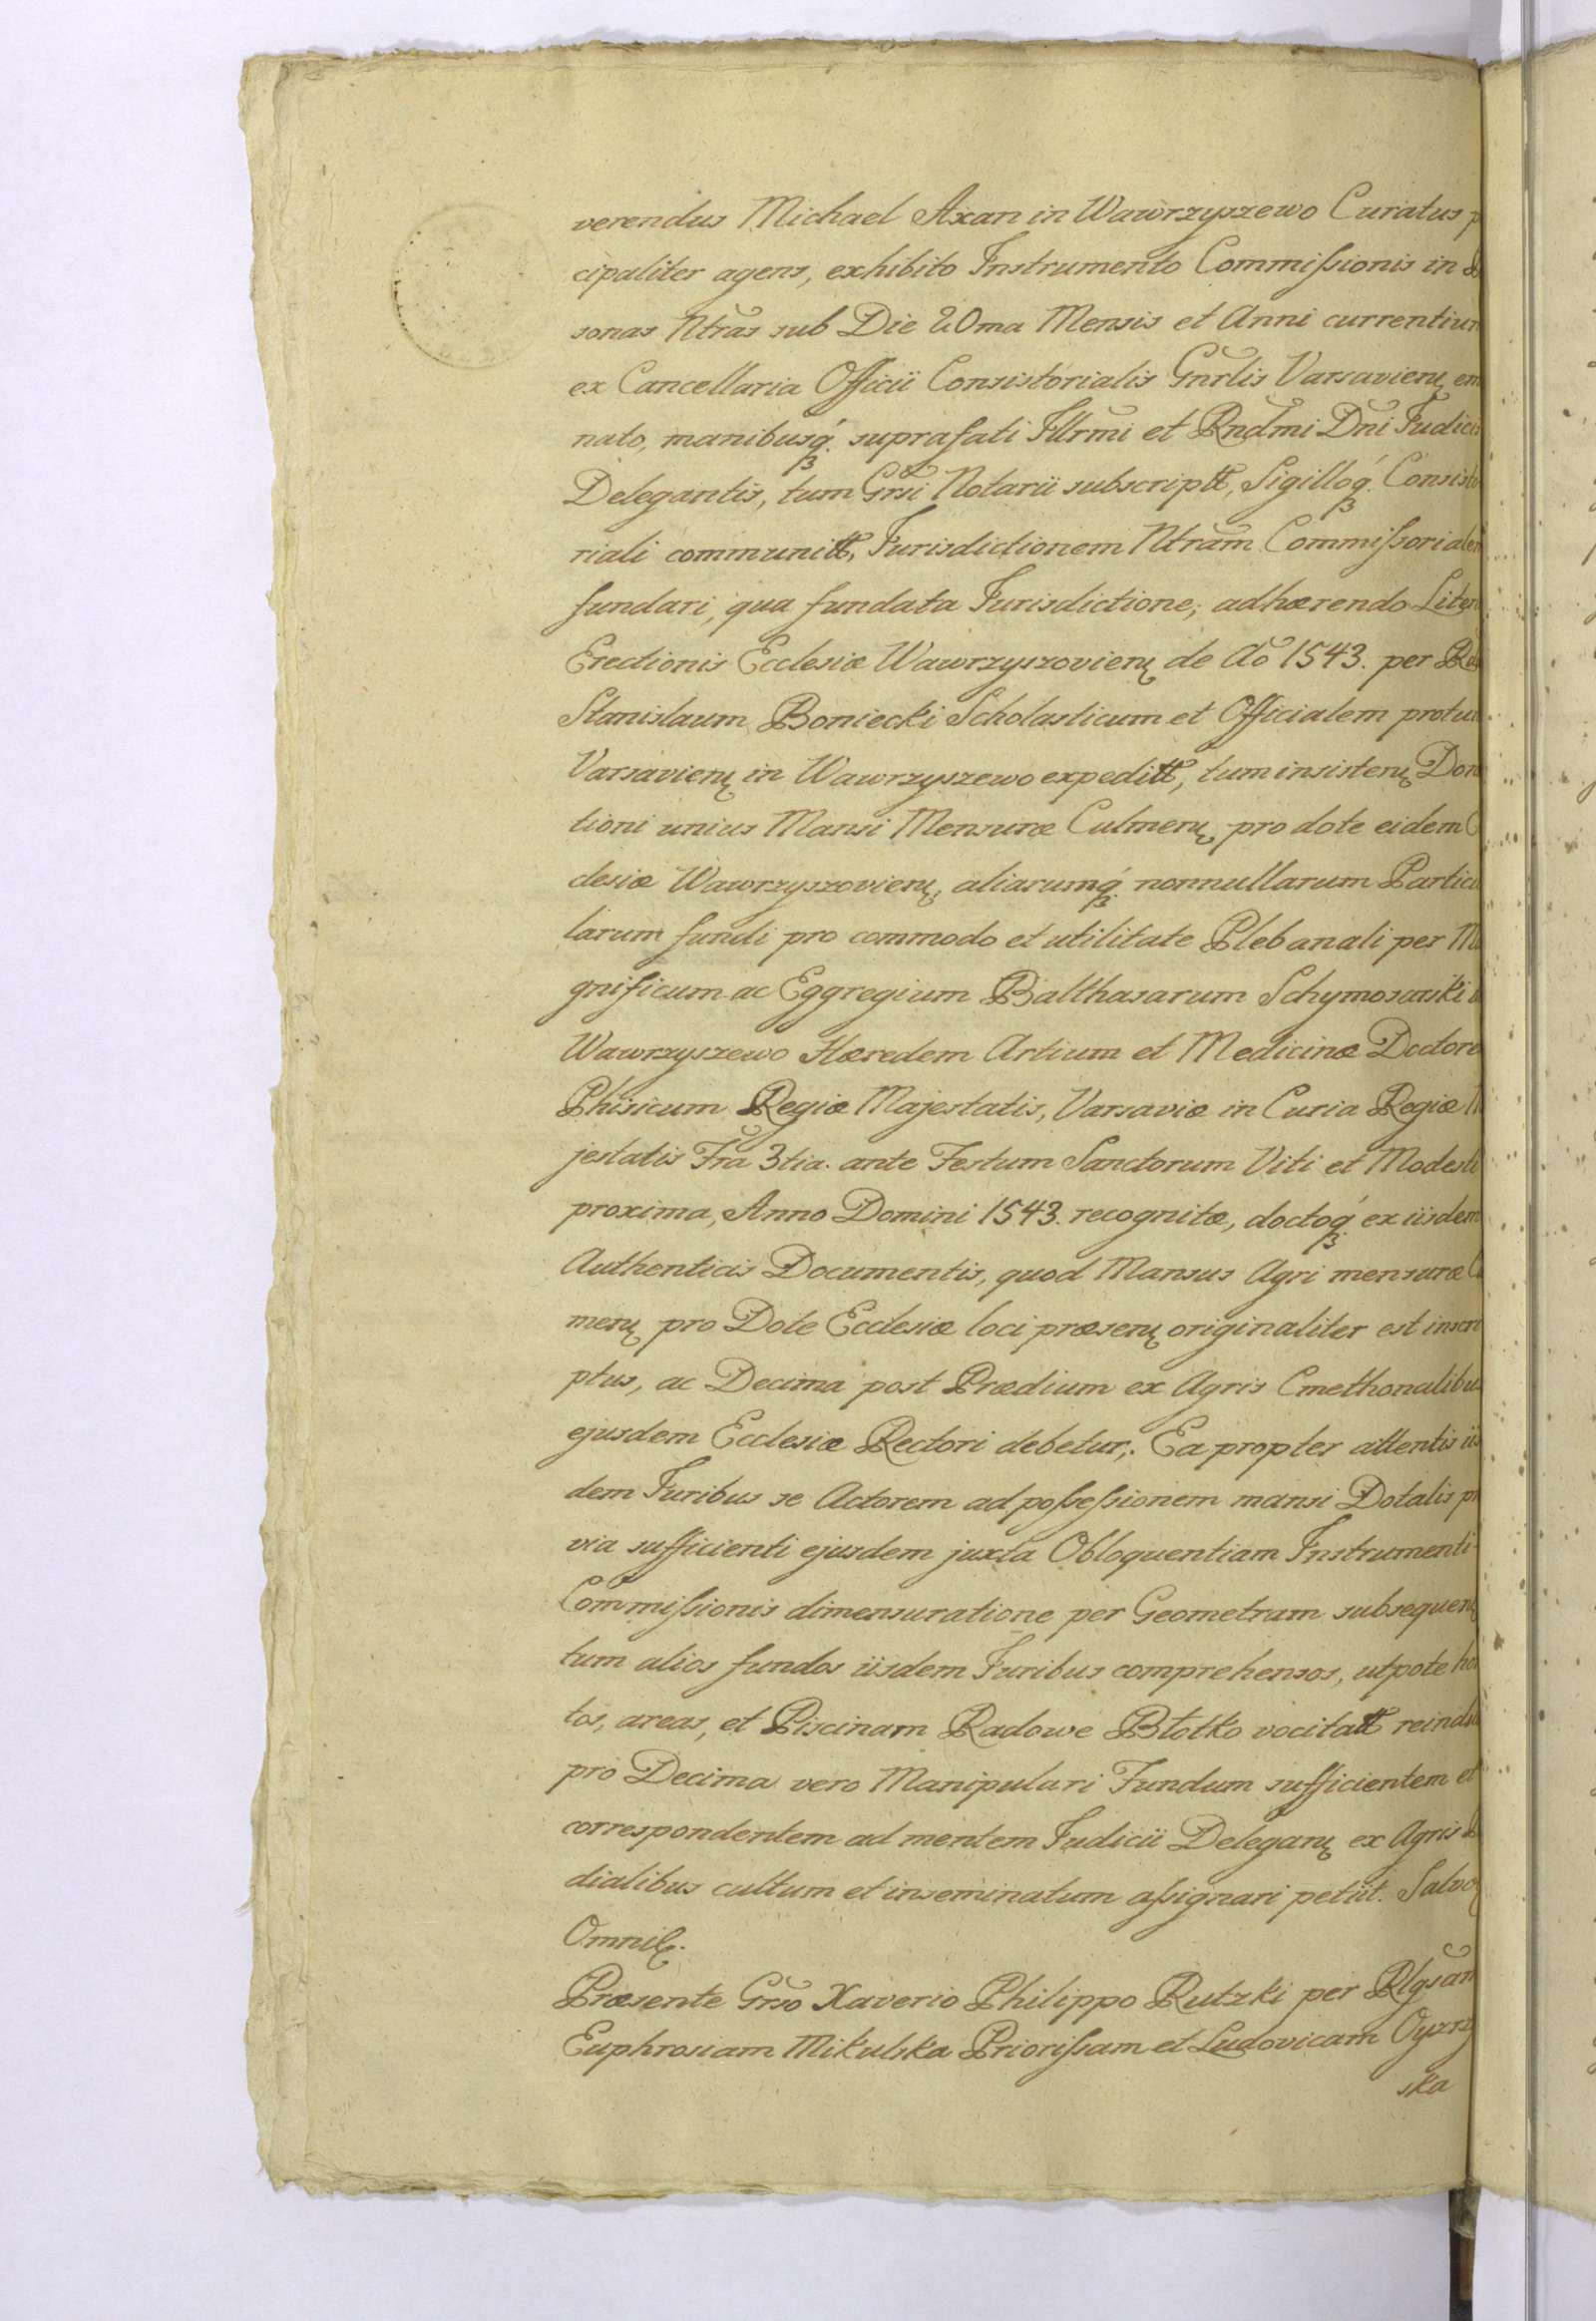 verendus Michael Axan in Wawrzyszewo Curatus p
cipaliter agens, exhibito Instrumento Commissionis in
sonas Ntras sub Die 20ma Mensis et Anni currentium
ex Cancellaria Officii Consistorialis Gnrlis Varsavien em
nato, manibusq. suprafati Illrmi et Rndmi Dni Judicis
Delegantis, tum Grsi Notarii subscriptt, Sigilloq. Consisto
riali communitt, Jurisdictionem Ntram Commissorialem
fundari, qua fundata Jurisdictione, adhærendo Liter
Erectionis Ecclesiæ Wawrzyszovien de Ao 1543. per
Stanislaum Boniecki Scholasticum et Officialem protun
Varsavien in Wawrzyszewo expeditt, tum insisten Dona
tioni unius Mansi Mensuræ Culmen pro dote eidem
clesiæ Wawrzyszovien, aliarumq. nonnullarum Particu
larum fundi pro commodo et utilitate Plebanali per Ma
gnificum ac Eggregium Balthasarum Schymosarski
Wawrzyszewo Hæredem Artium et Medicinæ Doctore
Phisicum Regiæ Majestatis, Varsaviæ in Curia Regiæ
jestatis Fra 3tia. ante Festum Sanctorum Viti et Modesti
proxima, Anno Domini 1543. recognitæ, doctoq. ex iisdem
Authenticis Documentis, quod Mansus Agri mensuræ
men pro Dote Ecclesiæ loci præsen originaliter est inscri
ptus, ac Decima post Prædium ex Agris Cmethonalibus
ejusdem Ecclesiæ Rectori debetur,. Ea propter attentis iis
dem Juribus se Actorem ad possessionem mansi Dotalis
via sufficienti ejusdem juxta Obloquentiam Instrumenti
Commissionis dimensuratione per Geometram subsequen
tum alios fundos iisdem Juribus comprehensos, utpote hor
tos, areas, et Piscinam Radowe Błotko vocitatt reindu
pro Decima vero Manipulari Fundum sufficientem et
correspondentem ad mentem Judicii Delegan ex Agris
dialibus cultum et inseminatum assignari petiit. Salvo
Omnib.
Præsente Grso Xaverio Philippo Rutzki per Rlgsam
Euphrosiam Mikulska Priorissam et Ludovicam
ska